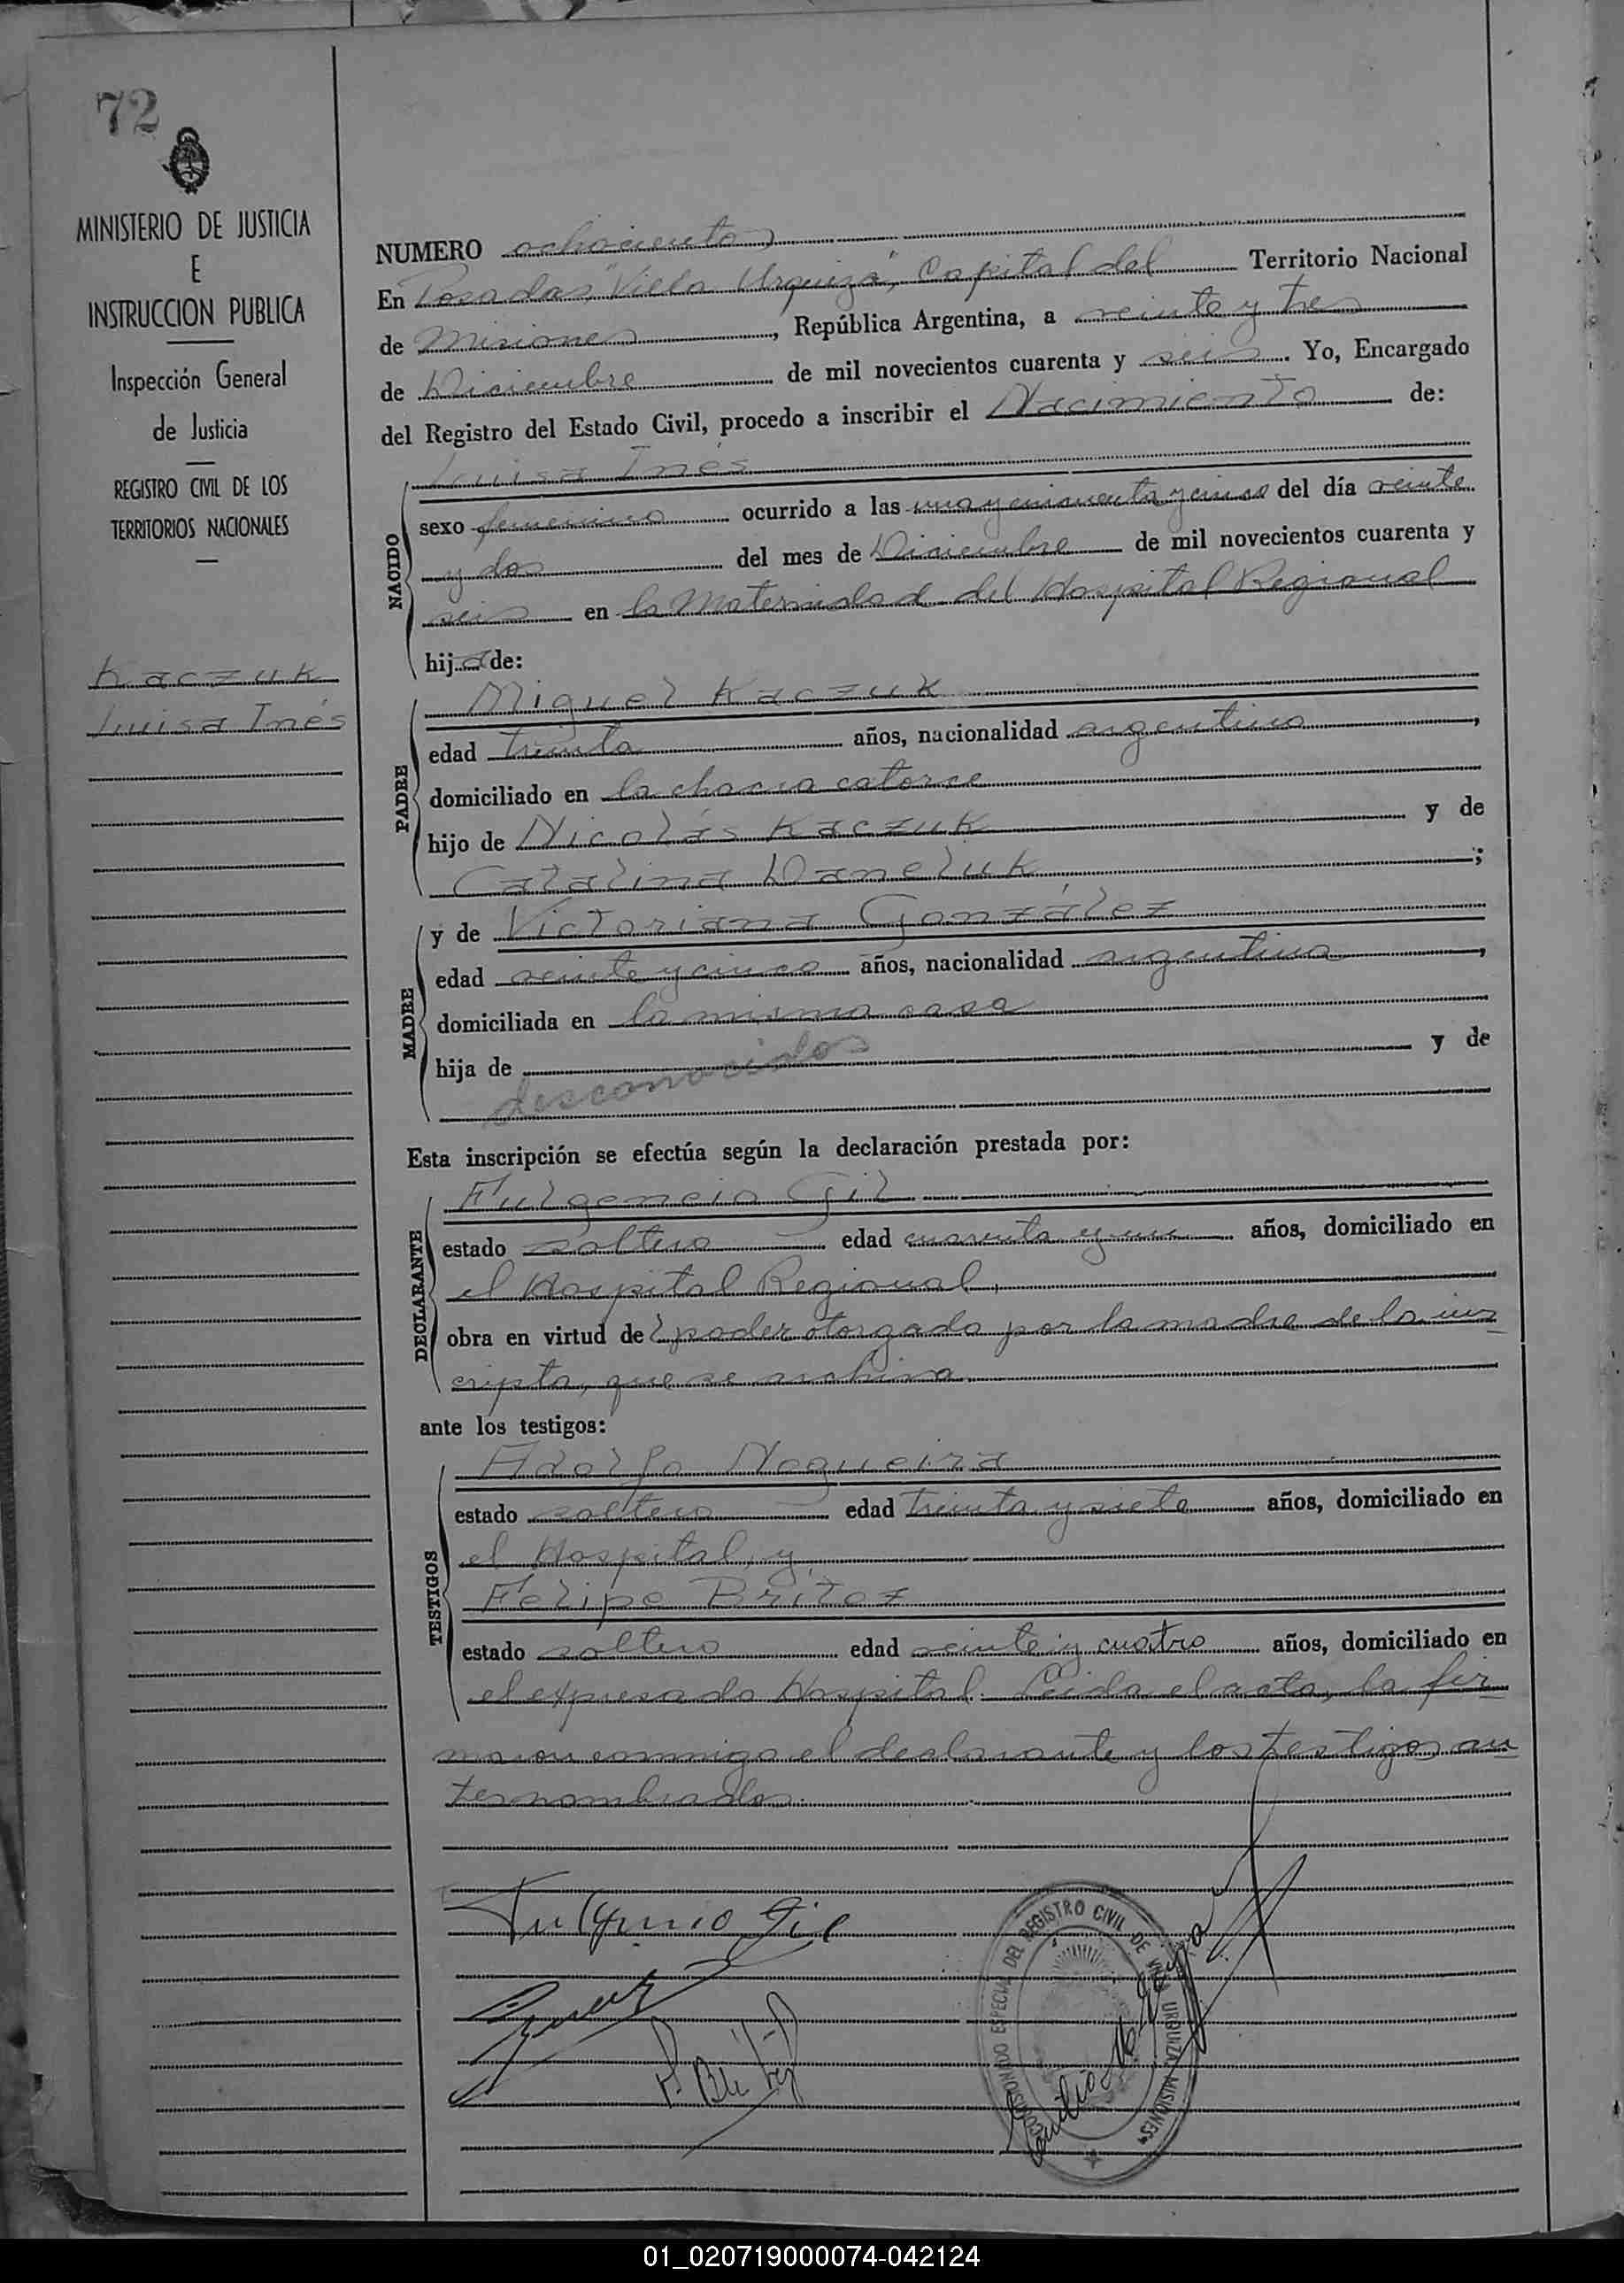 72
MINISTERIO DE JUSTICIA
E
INSTRUCCION PUBLICA
Inspección General
de Justicia
REGISTRO CIVIL DE LOS
TERRITORIOS NACIONALES
Kaczuk
Luisa Inés
NUMERO ochocientos
En Posadas, "Villa Urquiza", Capital del Territorio Nacional
de Misiones, República Argentina, a veinte y tres
de Diciembre de mil novecientos cuarenta y seis. Yo, Encargado
del Registro del Estado Civil, procedo a inscribir el Nacimiento de:
NACIDO
Luisa Inés
sexo femenino ocurrido a las una y cincuenta y cinco del día veinte
y dos del mes de Diciembre de mil novecientos cuarenta y
seis en la Maternidad del Hospital Regional
hija de:
PADRE
Miguel Kaczuk
edad treinta años, nacionalidad argentino,
domiciliado en la chacra catorce
hijo de Nicolás Kaczuk y de
Catalina Daneluk;
MADRE
y de Victoriana González
edad veinte y cinco años, nacionalidad argentina,
domiciliada en la misma casa
hija de desconocidos y de
Esta inscripción se efectúa según la declaración prestada por:
DECLARANTE
Fulgencio Gil
estado soltero edad cuarenta y un años, domiciliado en
el Hospital Regional,
obra en virtud del poder otorgado por la madre de la ins
cripta, que se archiva.
ante los testigos:
TESTIGOS
Adolfo Nogueira
estado soltero edad treinta y siete años, domiciliado en
el Hospital, y
Felipe Britez
estado soltero edad veinte y cuatro años, domiciliado en
el expresado Hospital. Leida el acta, la fir
maron conmigo el declarante y los testigos an
tes nombrados.
Fulgencio Gil
F. Britez
COMISIONADO ESPECIAL DEL REGISTRO CIVIL DE VILLA URQUIZA, MISIONES
01_020719000074-042124